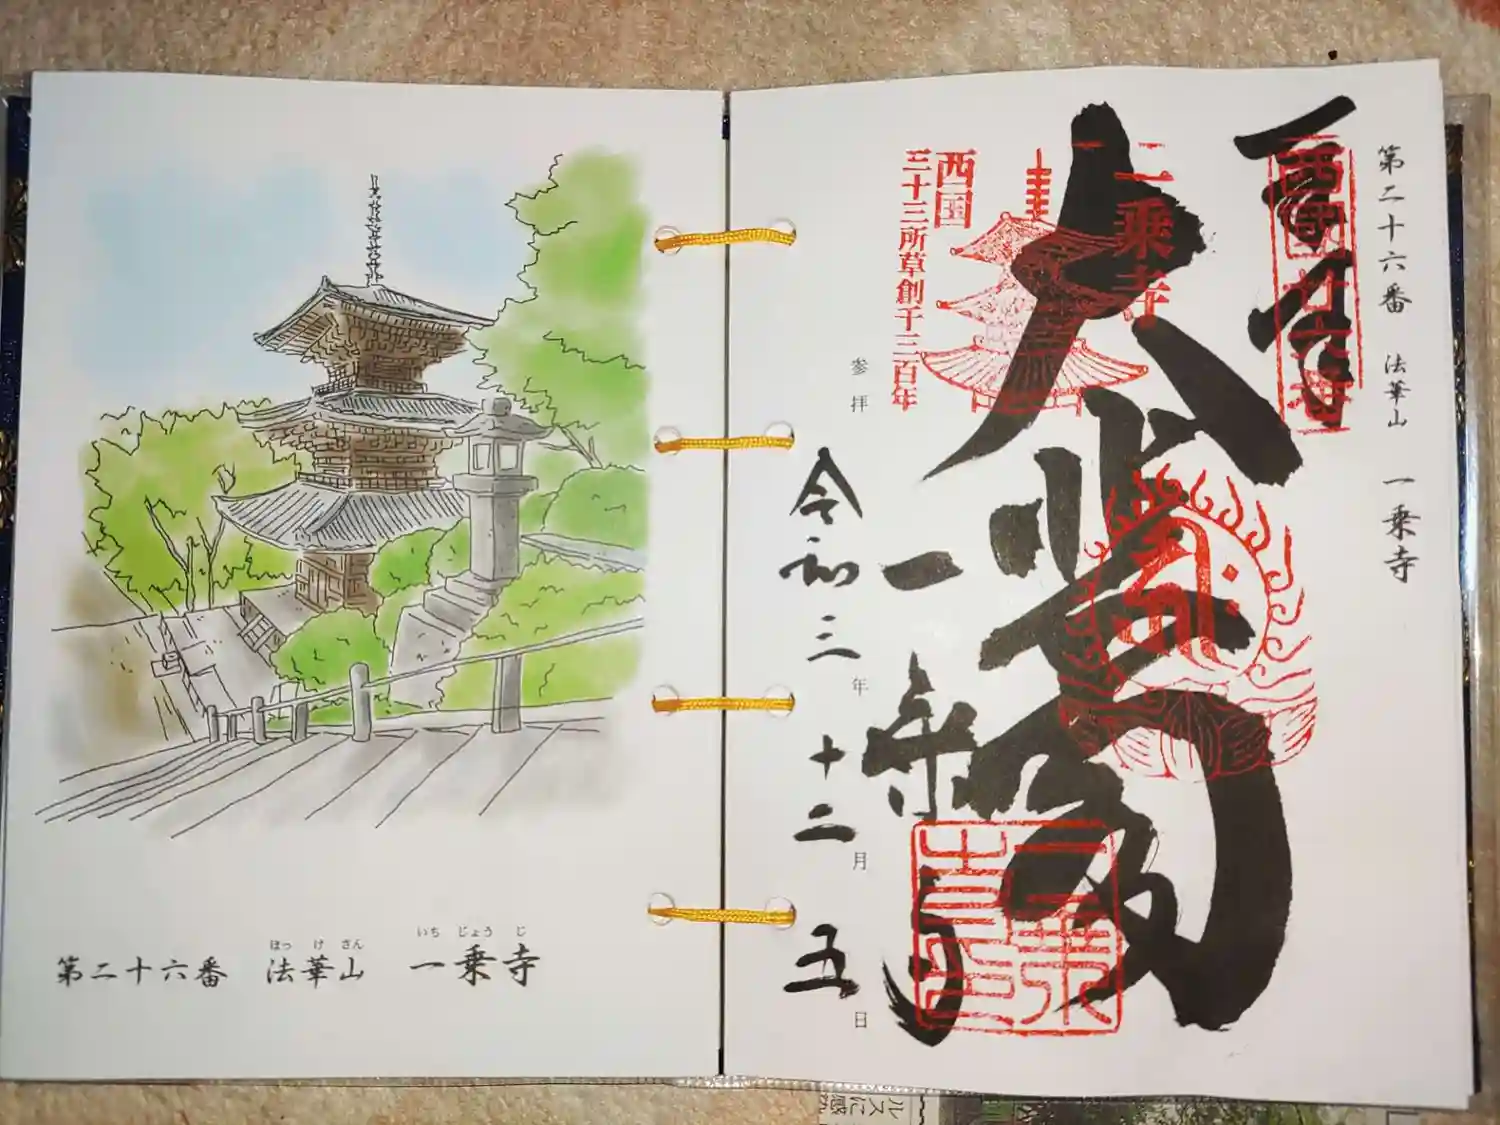 第二十六番　法華山　一乗寺
西國廿六番
大悲閣
一乗寺
西国
三十三所草創千三百年
一乗寺
参拝　令和三年十二月五日
ほっ　け　さん　いち　じょう　じ
第二十六番　法華山　一乗寺
ルスに感